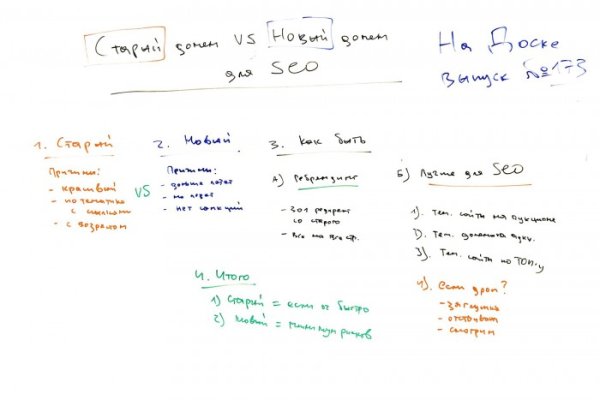 Старый домен VS Новый домен
для SEO
На Доске
выпуск №173
1. Старый
Причины:
- красивый
- по тематике
с ссылками
- с возрастом
VS
2. Новый
Причины:
- дольше
- не
- нет санкций
3. Как быть
А) Ребрендинг
- 301 редирект
со старого
- все на все стр.
Б) Лучше для SEO
1). Тем. сайты на аукционе
2). Тем. домены аукц.
3). Тем. сайты по ТОП-у
4). если дроп?
- заглушка
- отстаиваем
- смотрим
4. Итого
1) Старый = если ок быстро
2) Новый = минимум рисков